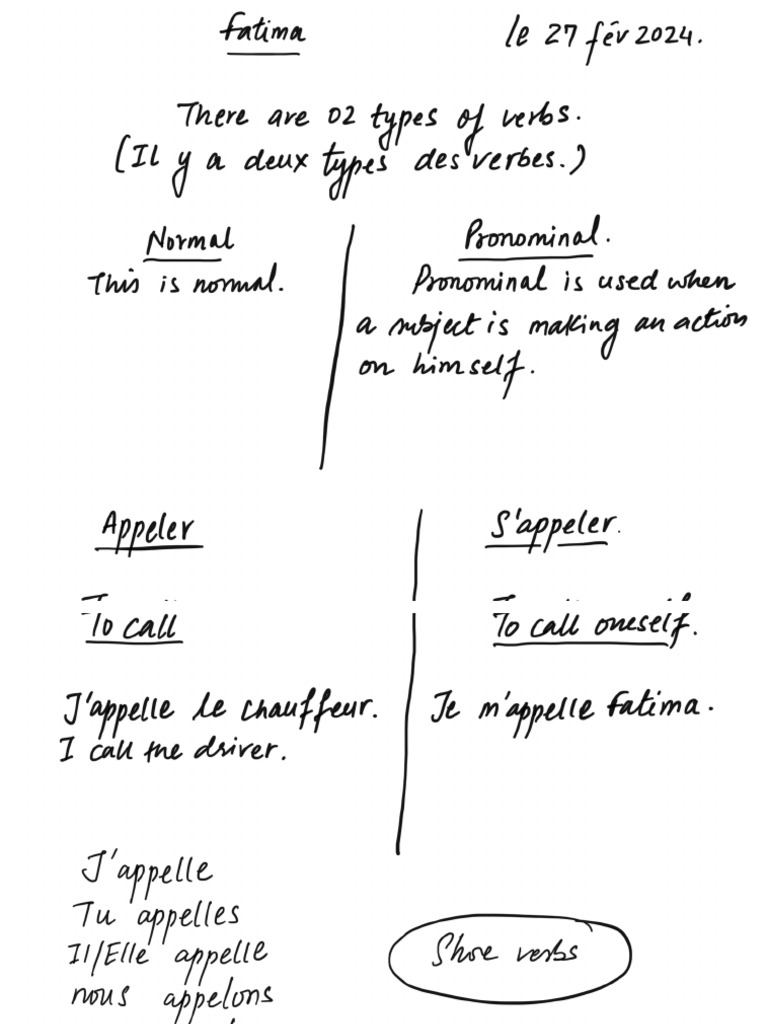 Fatima
le 27 fév 2024.
There are 02 types of verbs.
(Il y a deux types des verbes.)
Normal
This is normal.
Pronominal.
Pronominal is used when
a subject is making an action
on himself.
Appeler
To call
J'appelle le chauffeur.
I call the driver.
S'appeler.
To call oneself.
Je m'appelle Fatima.
J'appelle
Tu appelles
Il/Elle appelle
nous appelons
Shoe verbs